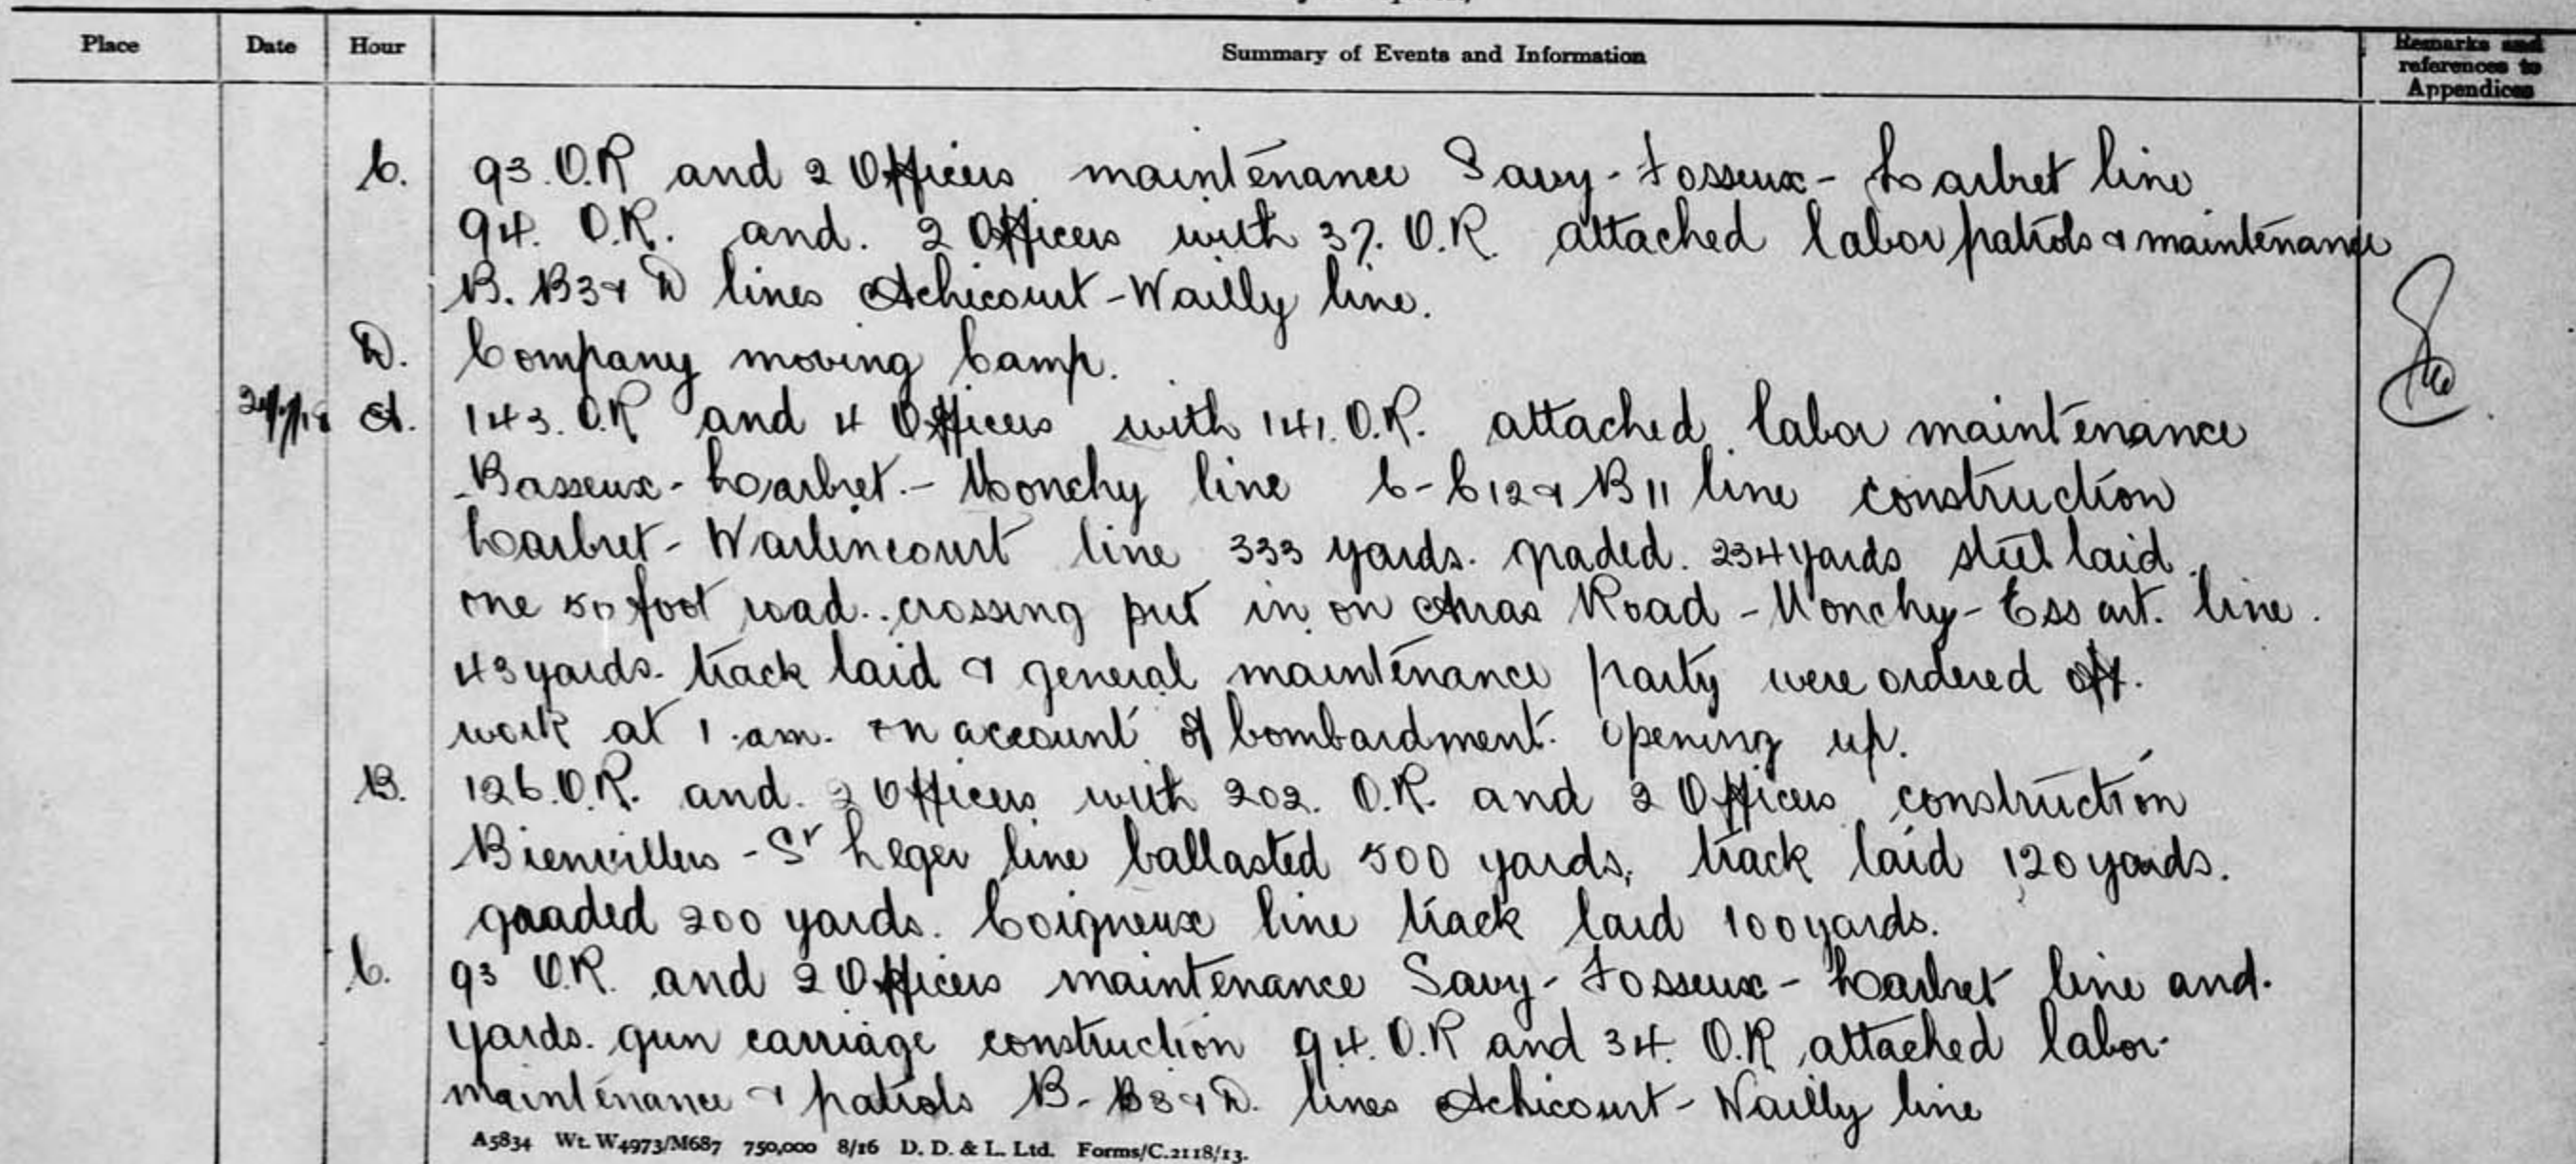 Place Date Hour Summary of Events and Information Remarks and references to Appendices
C. 93. O.R and 2 Officers maintenance Savy - Fosseux - Larbret line
94. O.R. and. 2 Officers with 37. O.R. attached labor patrols & maintenance
B. B3 & D lines Achicourt - Wailly line.
D. Company moving Camp.
A. 143. O.R and 4 Officers with 141. O.R. attached labor maintenance
Basseux - Larbret. - Monchy line C - C12 & B11 line construction
Larbret - Warlincourt line 333 yards. graded. 234 yards steel laid.
one 50 foot road.. crossing put in on Arras Road - Monchy - Essart. line.
43 yards. track laid & general maintenance party were ordered off.
work at 1. am. on account of bombardment. opening up.
B. 126. O.R. and. 2 Officers with 202. O.R. and 2 Officers construction
Bienvillers - St Leger line ballasted 500 yards, track laid 120 yards.
graded 200 yards. Coigneux line track laid 100 yards.
C. 93 O.R. and 2 Officers maintenance Savy - Fosseux - Larbret line and.
yards. gun carriage construction 94. O.R and 34. O.R attached labor
maintenance & patrols B - B3 & D. lines Achicourt - Wailly line
A5834 Wt. W4973/M687 750,000 8/16 D. D. & L. Ltd. Forms/C.2118/13.